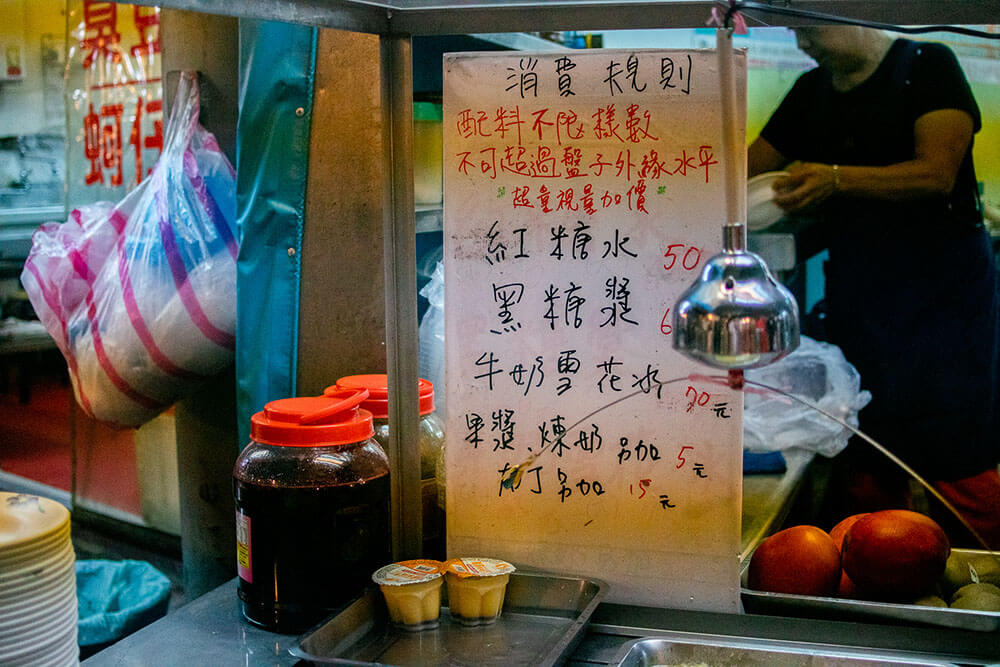 消費規則
配料不限樣數
不可超過盤子外緣水平
超量視量加價
紅糖水 50
黑糖漿 6
牛奶雪花冰 70元
果漿、煉奶 另加 5元
布丁另加 15元
蚵仔